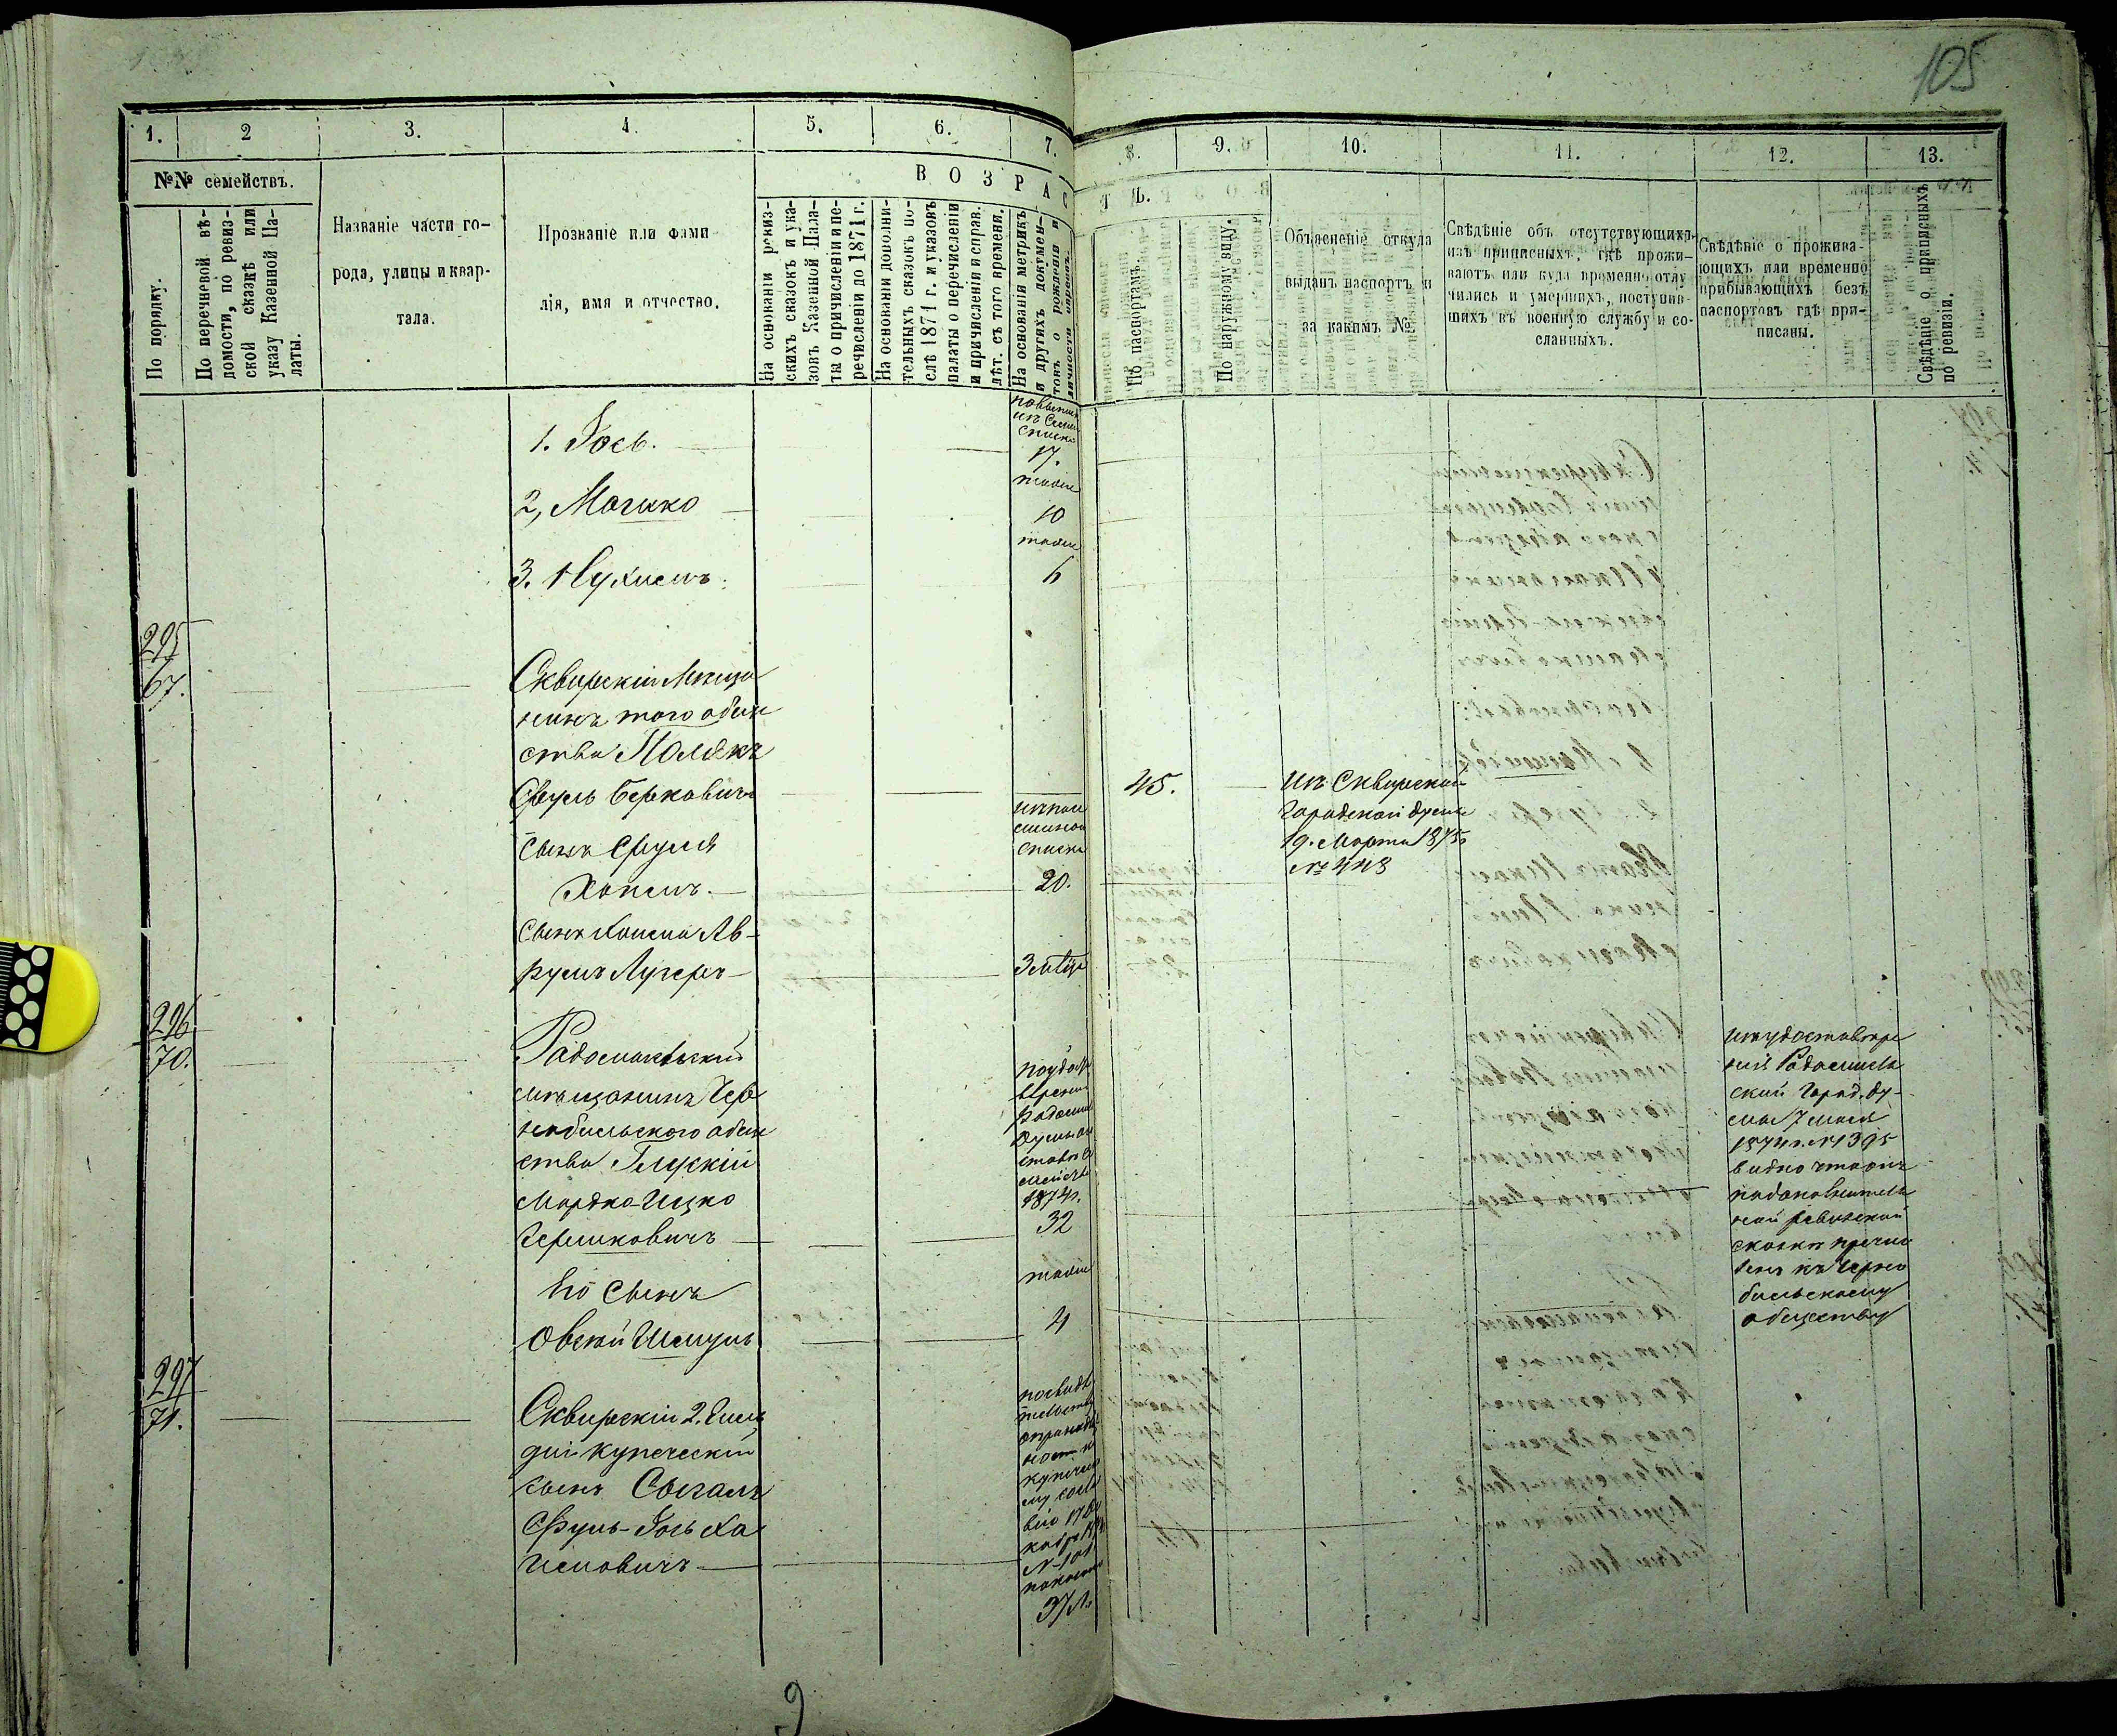 105
1.
2
3.
4.
5.
6.
7.
8.
9.
10.
11.
12.
13.
№№ семействъ.
По порядку.
По перечневой вѣ-
домости, по ревиз-
ской сказкѣ или
указу Казенной Па-
латы.
Названіе части го-
рода, улицы и квар-
тала.
Прозваніе или фами
лія, имя и отчество.
ВОЗРАС
ТЪ.
На основаніи ревиз-
скихъ сказокъ и ука-
зовъ Казенной Пала-
ты о причисленіи и пе-
речисленіи до 1871 г.
На основаніи дополни-
тельныхъ сказокъ по-
слѣ 1871 г. и указовъ
палаты о перечисленіи
и причисленіи и справ.
лѣт. съ того времени.
На основаніи метрикъ
и другихъ докумен-
товъ о рожденіи и
По паспортамъ.
По наружному виду.
Объясненіе откуда
выданъ паспортъ и
за какимъ №.
Свѣдѣніе объ отсутствующихъ
изъ приписныхъ, гдѣ прожи-
ваютъ или куда временно отлу
чились и умершихъ, поступив-
шихъ въ военную службу и со-
сланныхъ.
Свѣдѣніе о прожива-
ющихъ или временно
прибывающихъ безъ
паспортовъ гдѣ при-
писаны.
Свѣдѣніе о приписныхъ
по ревизіи.
1. Іось.
списка
17.
2, Мошко
10
3. Нухимъ
6
295
67.
Сквирскій Мѣща
нинъ того обще
ства Полякъ
Сруль Берковичъ
45.
Изъ Сквирской
Городской Думы
19. Марта 1875
№ 448
сынъ Сруля
Хаимъ.
списка
20.
сынъ Хаима Ав-
румъ Лузеръ
3 мѣся
296
70.
Радомысльскій
мѣщанинъ Чер
нобыльскаго обще
ства Глускій
Мордко-Ицко
Гершковичъ
1874г.
32
изъ удостовѣре
нія Радомысль
ской Город. Ду-
мы 7 мая
1874г. №1395
видно что онъ
подополнитель
ной ревизской
сказки причис
ленъ къ Черно
быльскому
обществу
Его сынъ
Овсѣй Шмуль
4
297
71.
Сквирскій 2. Гиль
діи купеческій
сынъ Сыгалъ
Сруль-Іось Ха
имовичъ
37 л.
9